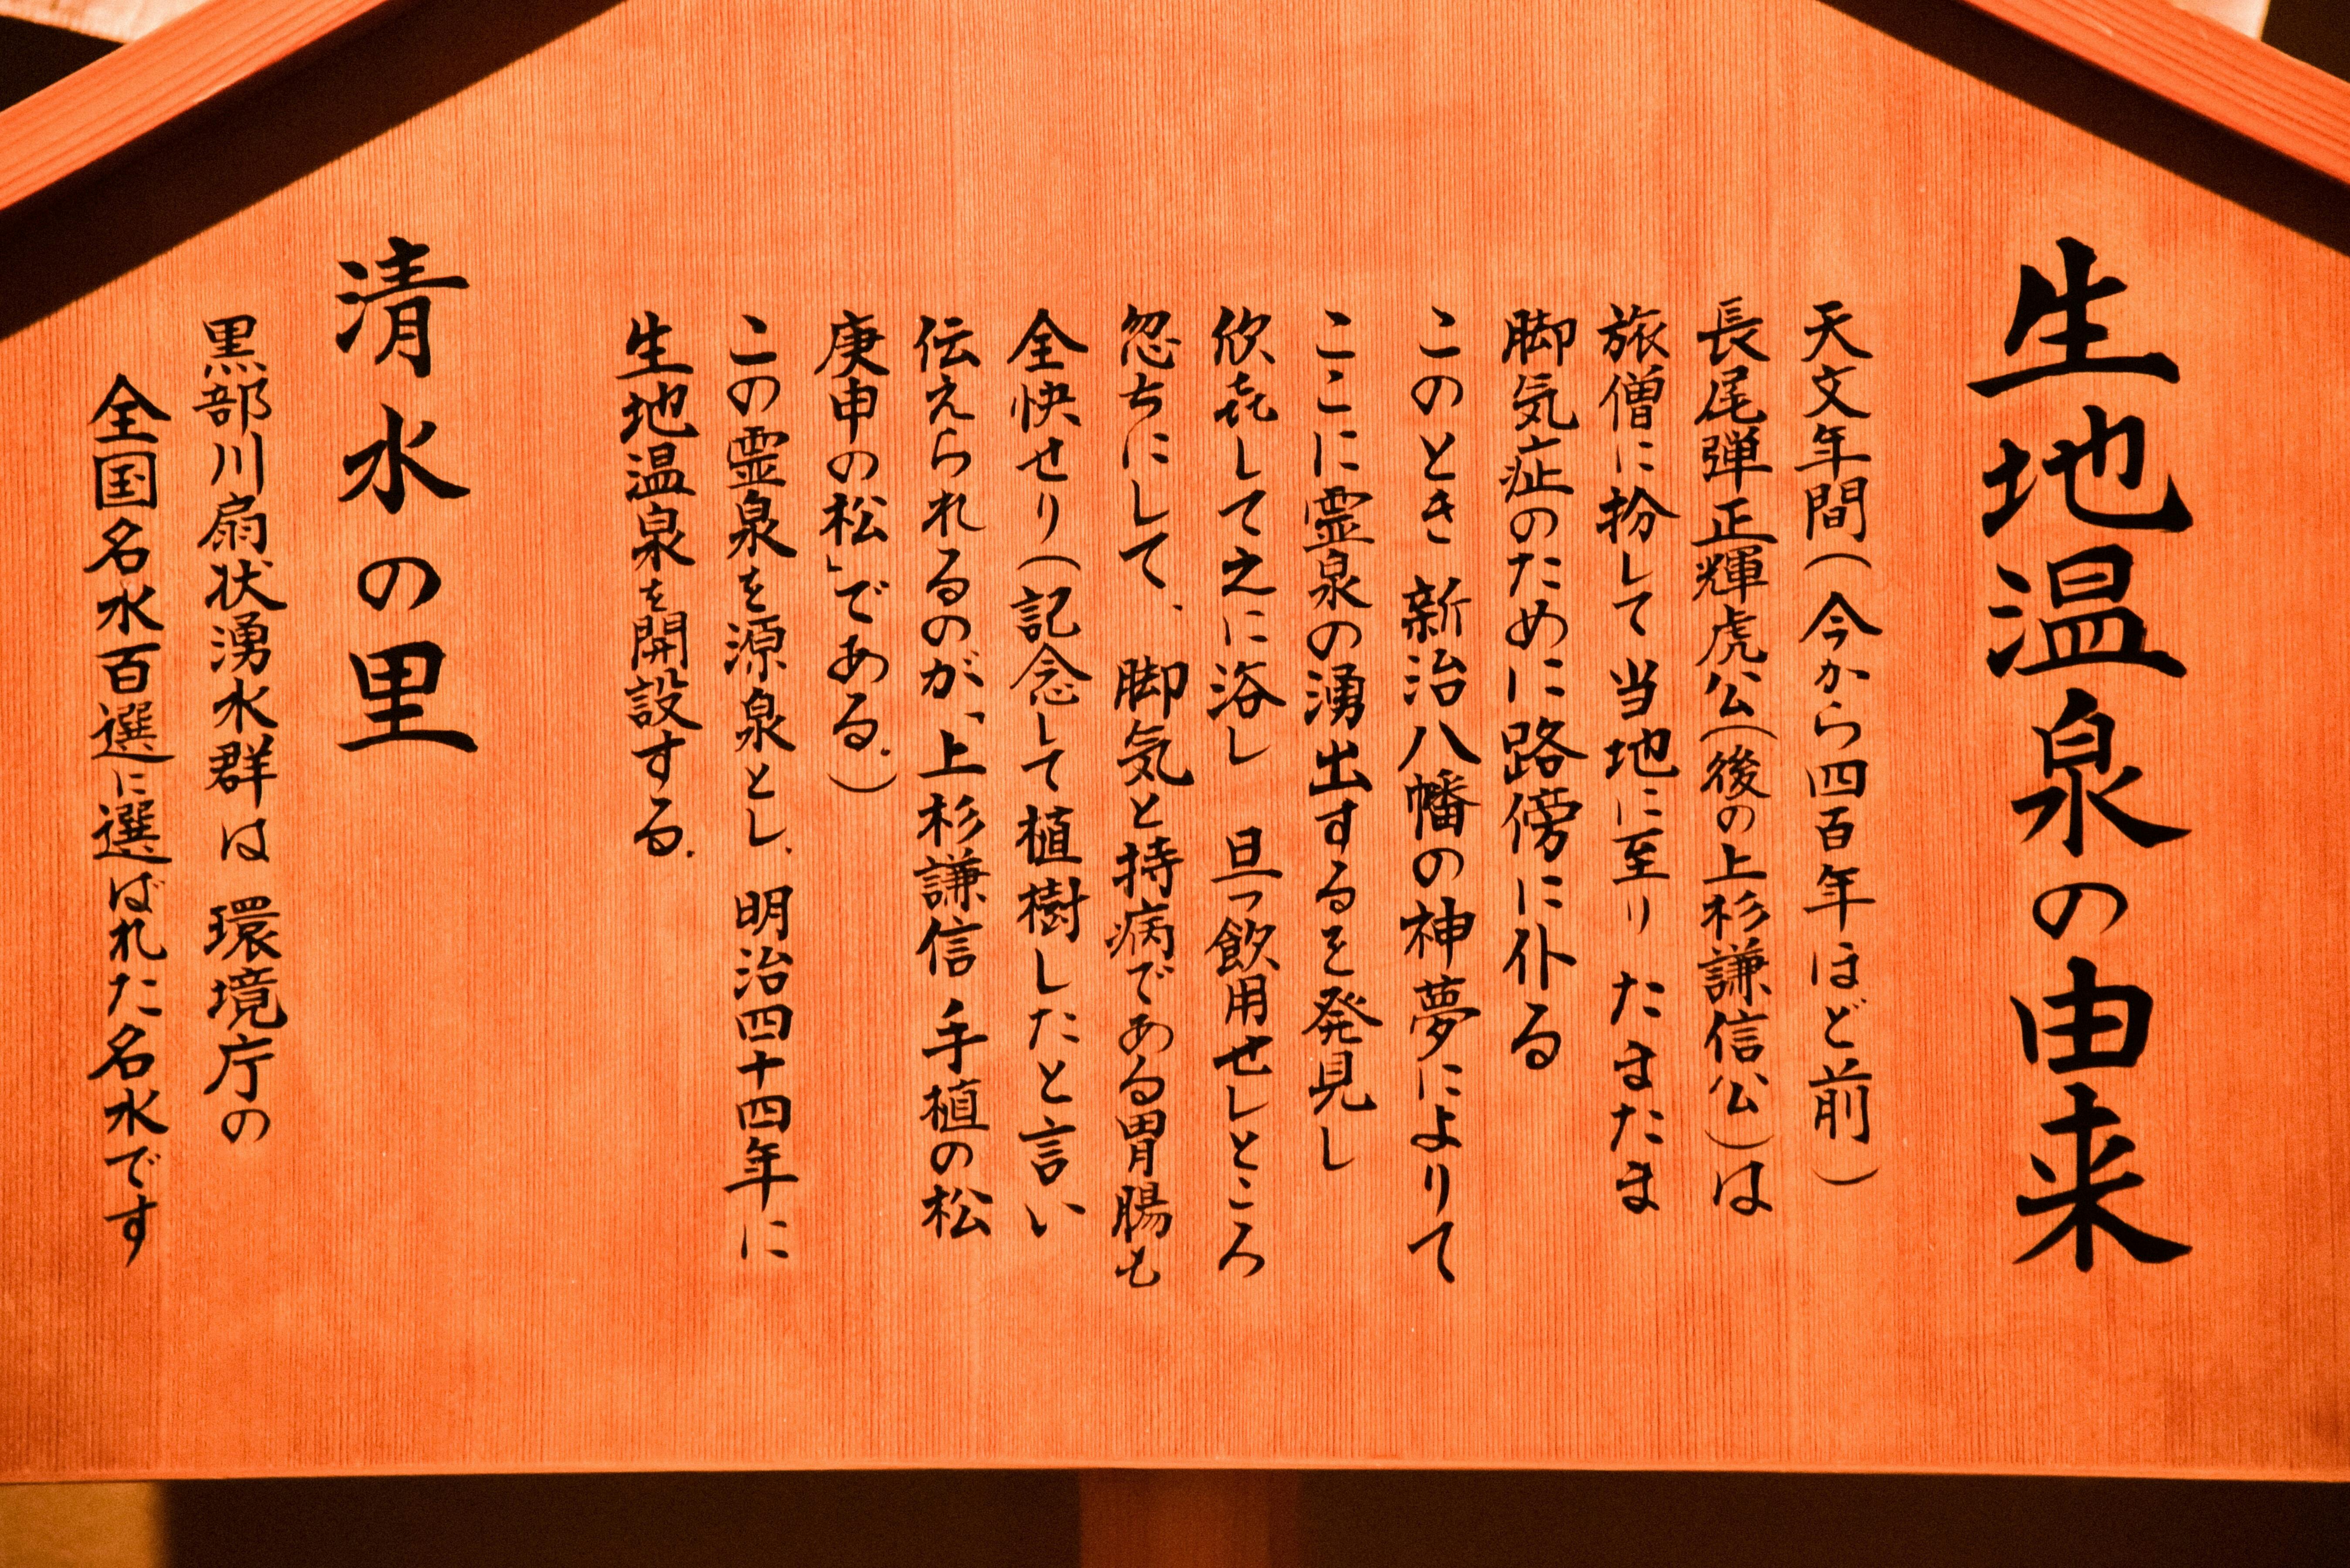 生地温泉の由来
天文年間(今から四百年ほど前)
長尾弾正輝虎公(後の上杉謙信公)は
旅僧に扮して当地に至り たまたま
脚気症のために路傍に仆る
このとき 新治八幡の神夢によりて
ここに霊泉の湧出するを発見し
欣㐂して之に浴し 旦っ飲用せしところ
忽ちにして、脚気と持病である胃腸も
全快せり(記念して植樹したと言い
伝えられるのが、「上杉謙信 手植の松
庚申の松」である。)
この霊泉を源泉とし、明治四十四年に
生地温泉を開設する。
清水の里
黒部川扇状湧水群は 環境庁の
全国名水百選に選ばれた名水です